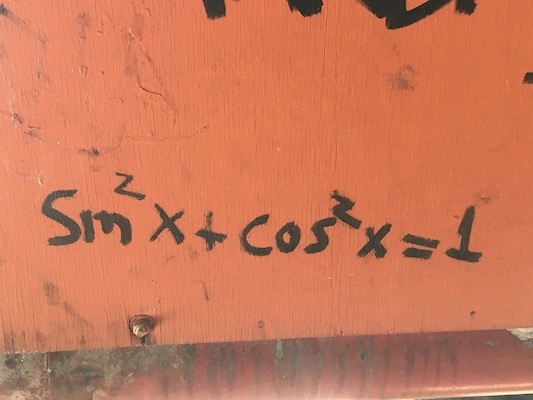 sin²x+cos²x=1